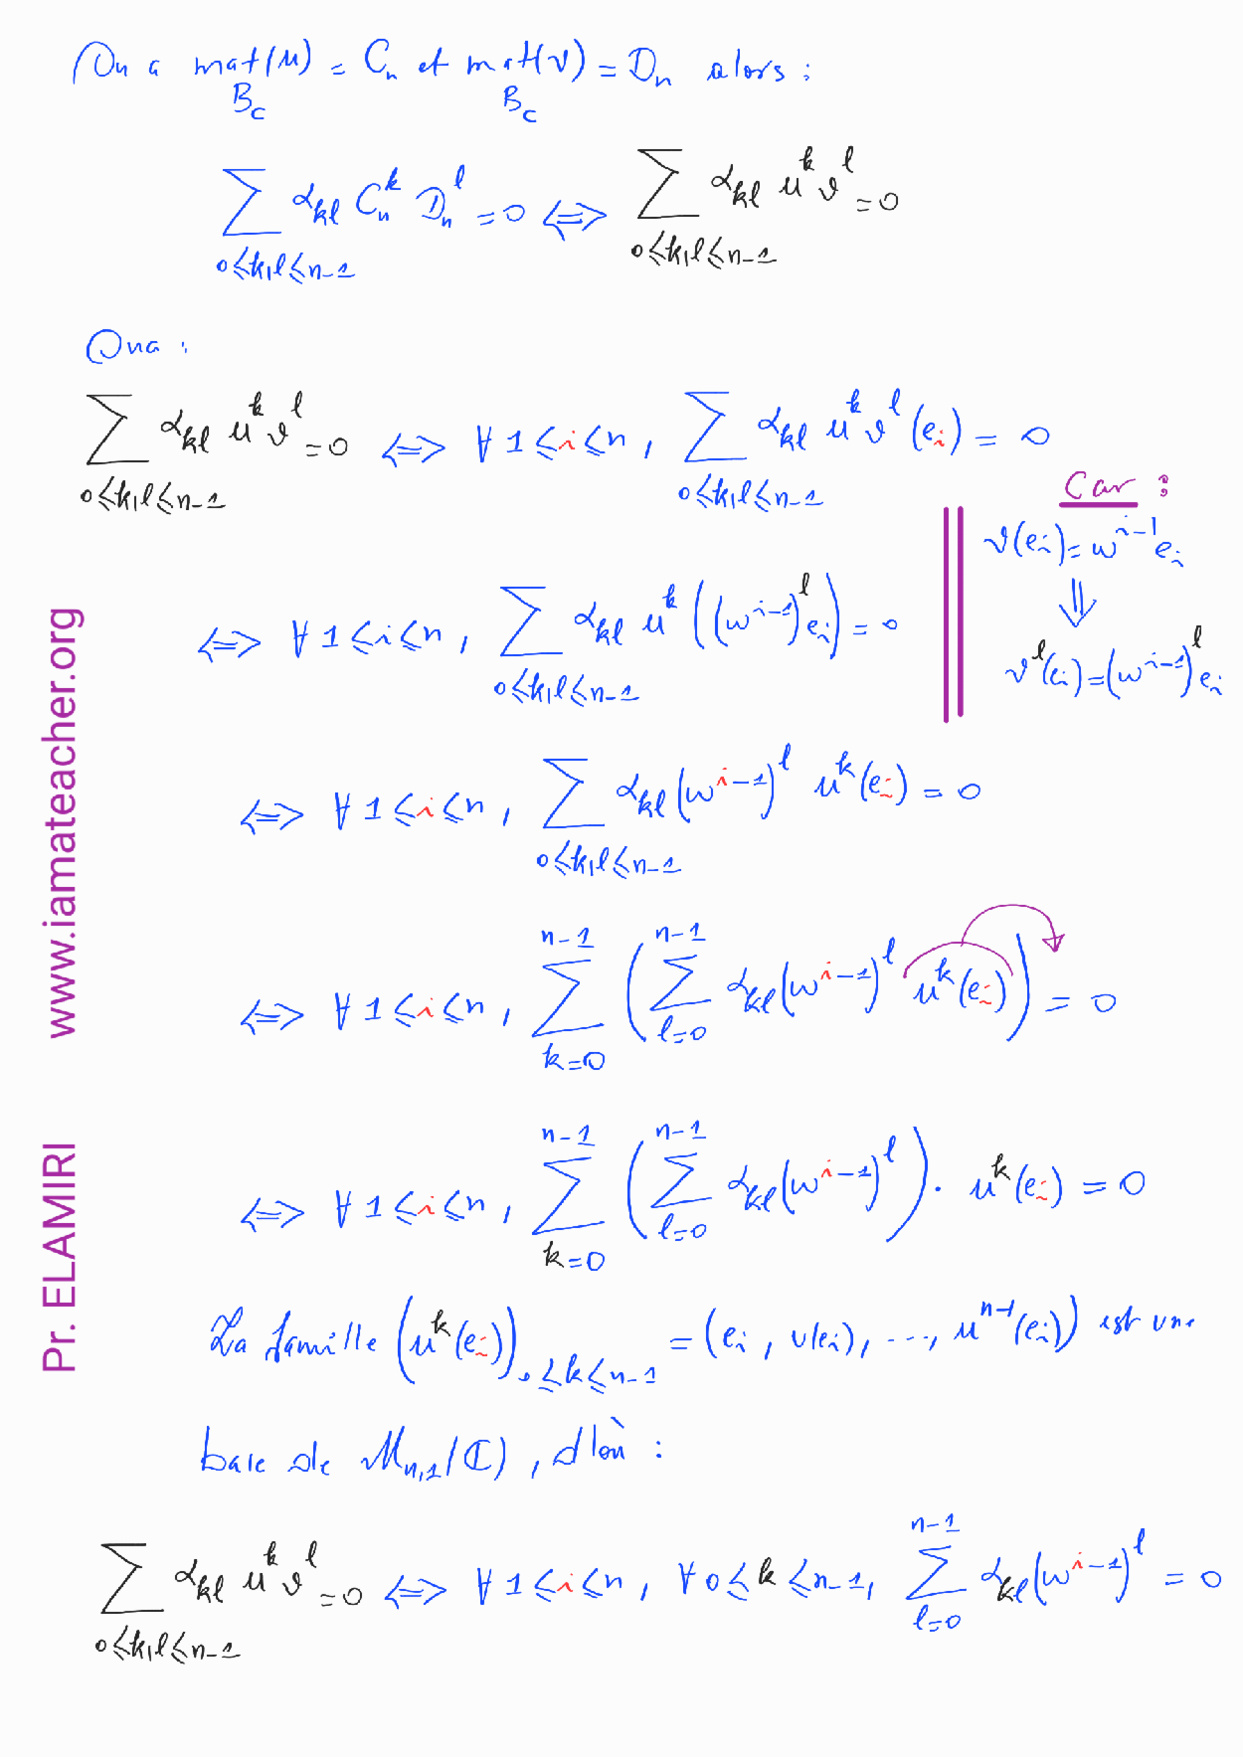 On a mat(u) = C_n et mat(v) = D_n alors :
B_c B_c
∑_{0≤k,l≤n-1} α_{kl} C_n^k D_n^l = 0 ⟺ ∑_{0≤k,l≤n-1} α_{kl} u^k v^l = 0
On a :
∑_{0≤k,l≤n-1} α_{kl} u^k v^l = 0 ⟺ ∀ 1≤i≤n, ∑_{0≤k,l≤n-1} α_{kl} u^k v^l (e_i) = 0
Car :
v(e_i) = w^{i-1} e_i
⇓
v^l(e_i) = (w^{i-1})^l e_i
⟺ ∀ 1≤i≤n, ∑_{0≤k,l≤n-1} α_{kl} u^k ((w^{i-1})^l e_i) = 0
⟺ ∀ 1≤i≤n, ∑_{0≤k,l≤n-1} α_{kl} (w^{i-1})^l u^k(e_i) = 0
⟺ ∀ 1≤i≤n, ∑_{k=0}^{n-1} (∑_{l=0}^{n-1} α_{kl} (w^{i-1})^l u^k(e_i)) = 0
⟺ ∀ 1≤i≤n, ∑_{k=0}^{n-1} (∑_{l=0}^{n-1} α_{kl} (w^{i-1})^l). u^k(e_i) = 0
La famille (u^k(e_i))_{0≤k≤n-1} = (e_i, u(e_i), ..., u^{n-1}(e_i)) est une
base de M_{n,1}(ℂ), d'où :
∑_{0≤k,l≤n-1} α_{kl} u^k v^l = 0 ⟺ ∀ 1≤i≤n, ∀ 0≤k≤n-1, ∑_{l=0}^{n-1} α_{kl} (w^{i-1})^l = 0
Pr. ELAMIRI www.iamateacher.org